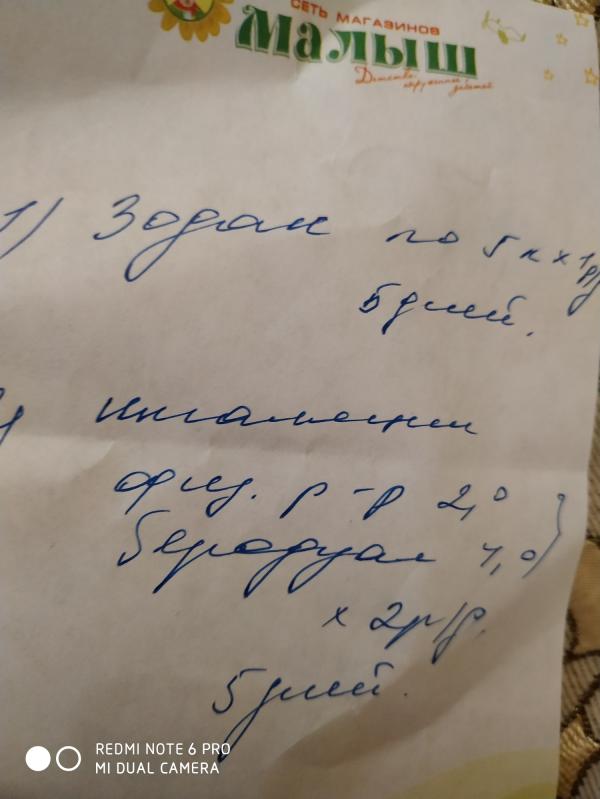 СЕТЬ МАГАЗИНОВ
Малыш
Детство, окруженное заботой
1) Зодак по 5 к х 1 р/д
5 дней.
ингаляции
физ. р-р 2,0
Беродуал 1,0
х 2 р/д.
5 дней.
REDMI NOTE 6 PRO
MI DUAL CAMERA